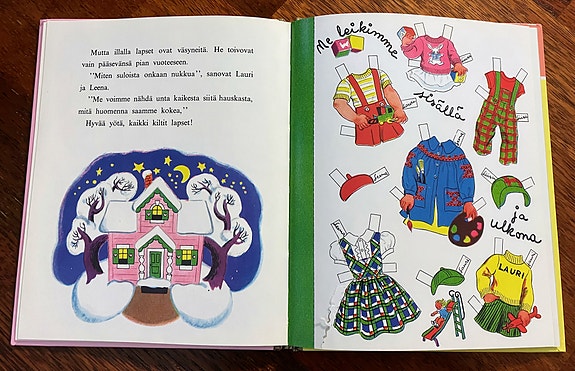 Mutta illalla lapset ovat väsyneitä. He toivovat
vain pääsevänsä pian vuoteeseen.
"Miten suloista onkaan nukkua", sanovat Lauri
ja Leena.
"Me voimme nähdä unta kaikesta siitä hauskasta,
mitä huomenna saamme kokea,"
Hyvää yötä, kaikki kiltit lapset!
Me leikimme
sisällä
ja
ulkona
LAURI